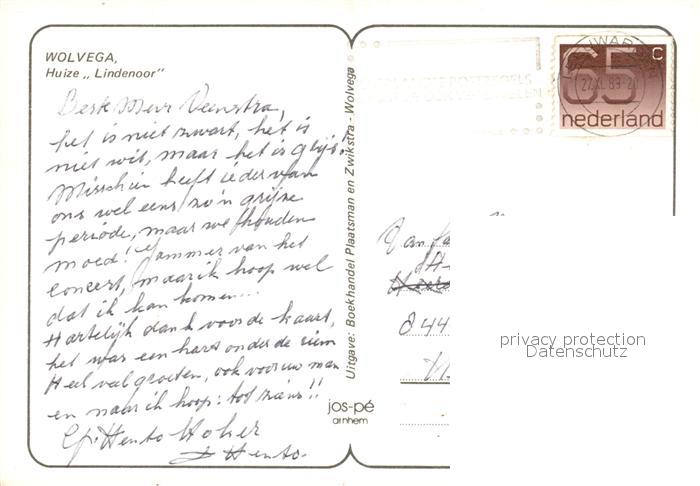 WOLVEGA,
Huize „Lindenoor”
Beste Mevr Veenstra,
het is niet zwart, het is
niet wit, maar het is grijs!
Misschien heeft ieder van
ons wel eens zo'n grijze
periode, maar we houden
moed! Jammer van het
concert, maar ik hoop wel
dat ik kan komen...
Hartelijk dank voor de kaart,
het was een hart onder de riem
Heel veel groeten, ook voor uw man
en naar ik hoop: tot ziens!!
Hento
Hento.
Uitgave: Boekhandel Plaatsman en Zwikstra - Wolvega
jos-pé
arnhem
65 c
nederland
Van
844
privacy protection
Datenschutz